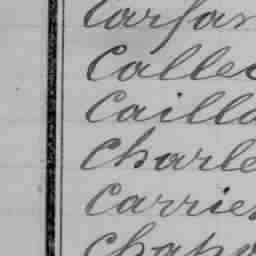 Carfan
Callec
Cailla
Charle
Carrier
Chapo